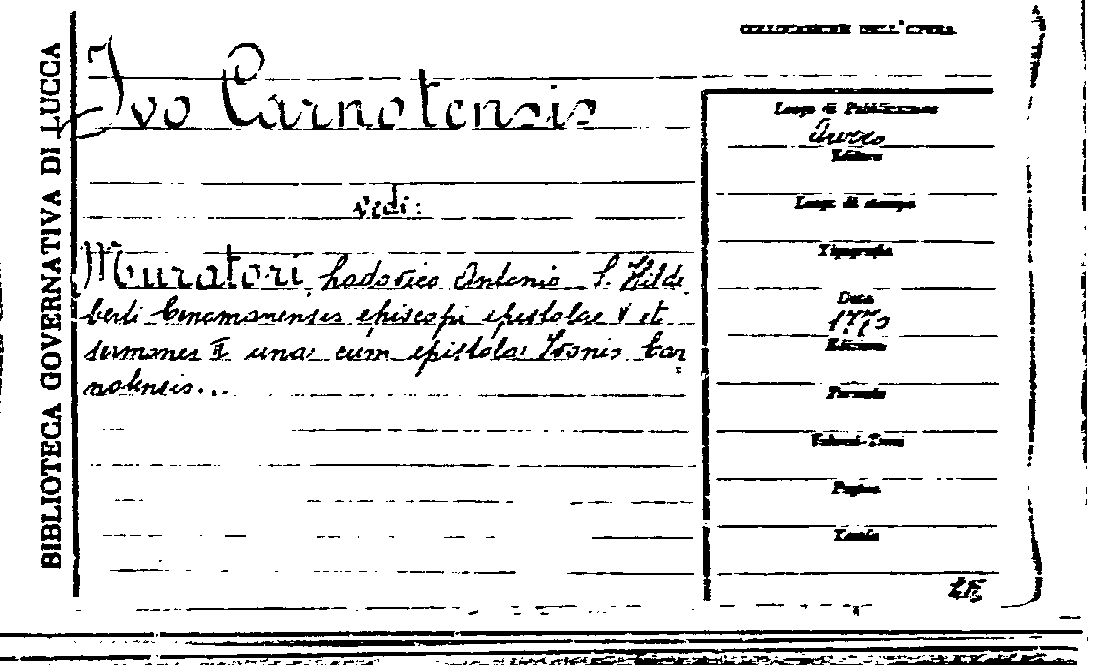 BIBLIOTECA GOVERNATIVA DI LUCCA
COLLOCAZIONE DELL'OPERA
Ivo Carnotensis
vedi:
Muratori Lodovico Antonio S. Hilde
berti Cenomanensis episcopi epistolae V et
sermones II una cum epistola Ivonis Car
notensis...
Luogo di Pubblicazione
Arezzo
Editore
Luogo di stampa
Tipografia
Data
1770
Edizione
Formato
Volumi-Tomi
Pagine
Tavole